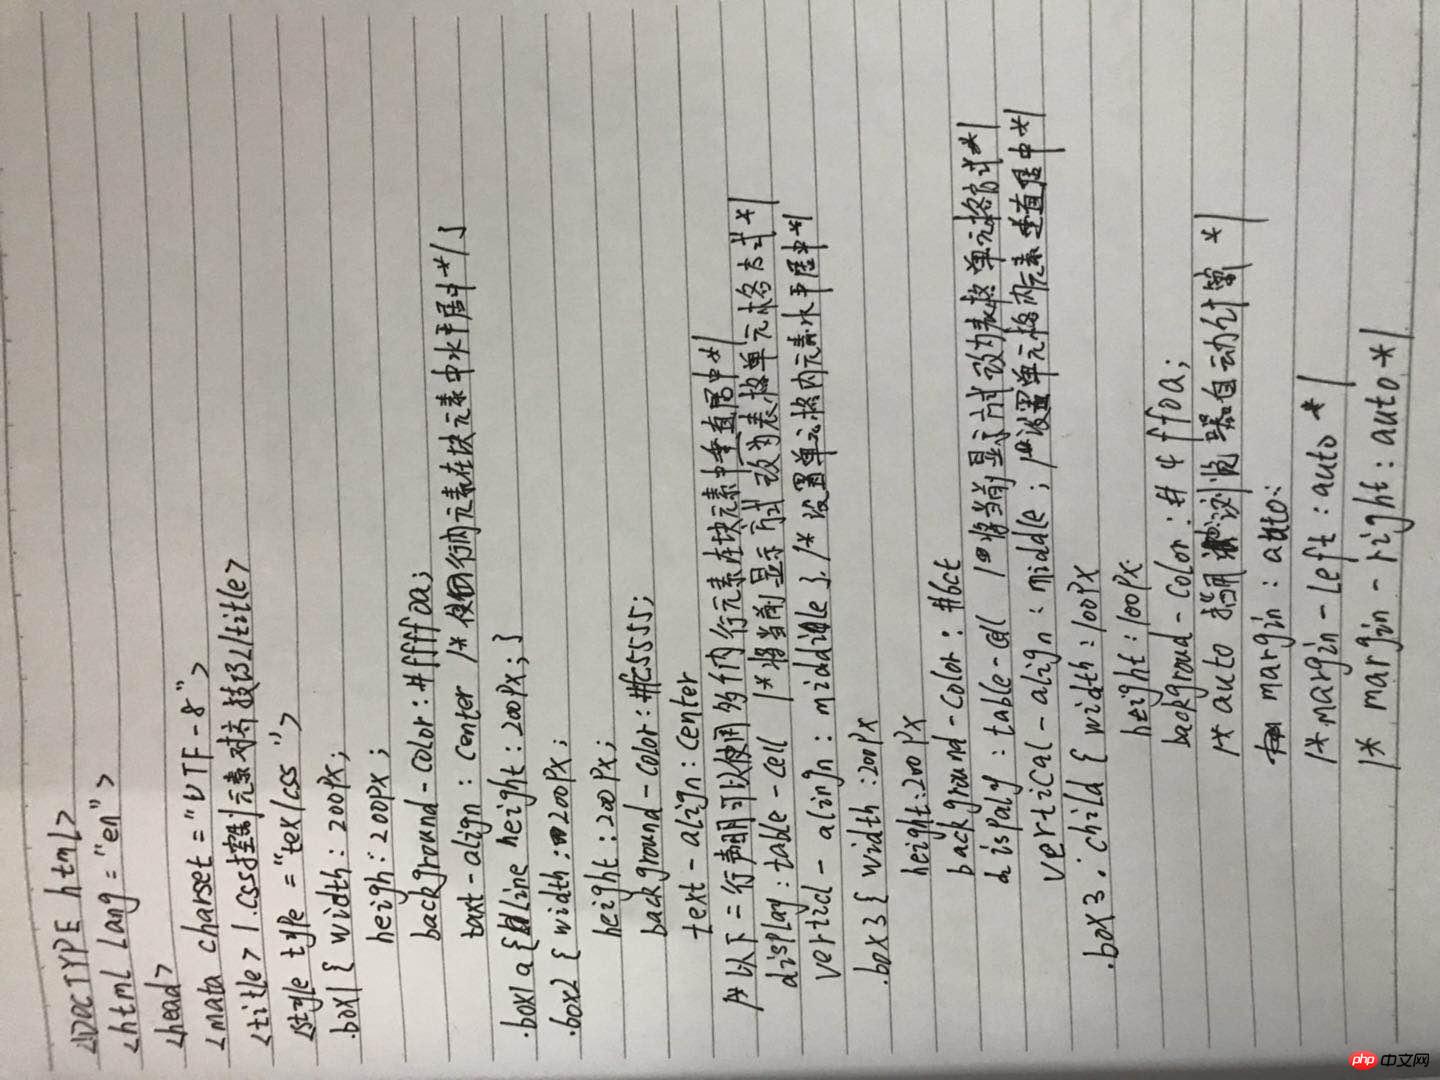 <!DOCTYPE html>
<html lang="en">
<head>
<mata charset="UTF-8">
<title>1.css控制元素对齐技巧</title>
<style type="tex/css">
.box1{width:200px;
heigh:200px;
background-color:#ffff0a;
taxt-align:center /*使行内元素在块元素中水平居中*/}
.box1 a{line height:200px;}
.box2{width:200px;
height:200px;
background-color:#fc5555;
text-align:center
/*以下二行声明可以使用的行内元素在块元素中垂直居中*/
display:table-cell /*将当前显示方式改为表格单元格方式*/
verticl-alingn:middle}/*设置单元格内元素水平居中*/
.box3{width:200px
height:200px
background-color:#6ct
dispaly:table-cell /*将当前显示方式改为表格单元格方式*/
vertical-align:middle;/*设置单元格内元素垂直居中*/
.box3.child{width:100px
height:100px
background-color:#4ff0a;
/*auto 指明浏览器自动计算*/
margin:auto;
/*margin-left:auto*/
/*margin-right:auto*/
php 中文网